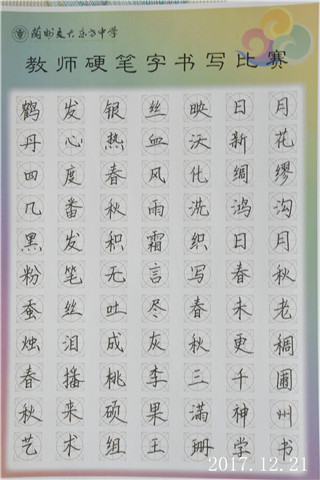 兰州交大东方中学
教师硬笔字书写比赛
鹤发银丝映日月
丹心热血沃新花
四度春风化绸缪
几番秋雨洗鸿沟
黑发积霜织日月
粉笔无言写春秋
蚕丝吐尽春未老
烛泪成灰秋更稠
春播桃李三千圃
秋来硕果满神州
艺术组王珊学书
2017.12.21